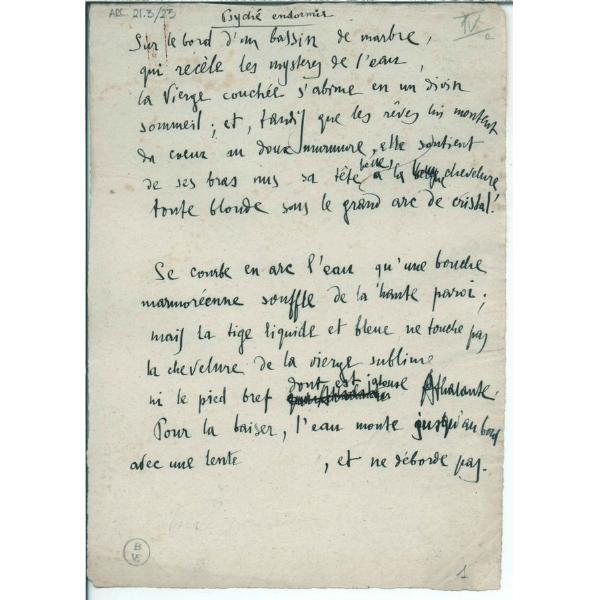 ARC 21.3/23
Psyché endormie
IV
Sur le bord d'un bassin de marbre,
qui recèle les mystères de l'eau,
la Vierge couchée s'abîme en un divin
sommeil ; et, tandis que les rêves lui montent
du coeur au doux murmure, elle soutient
de ses bras nus sa tête belle, à la chevelure
toute blonde sous le grand arc de cristal !
Se courbe en arc l'eau qu'une bouche
marmoréenne souffle de la haute paroi ;
mais la tige liquide et bleue ne touche pas
la chevelure de la vierge sublime
ni le pied bref dont est jalouse Athalante.
Pour la baiser, l'eau monte jusqu'au bord
avec une lente , et ne déborde pas.
B
1